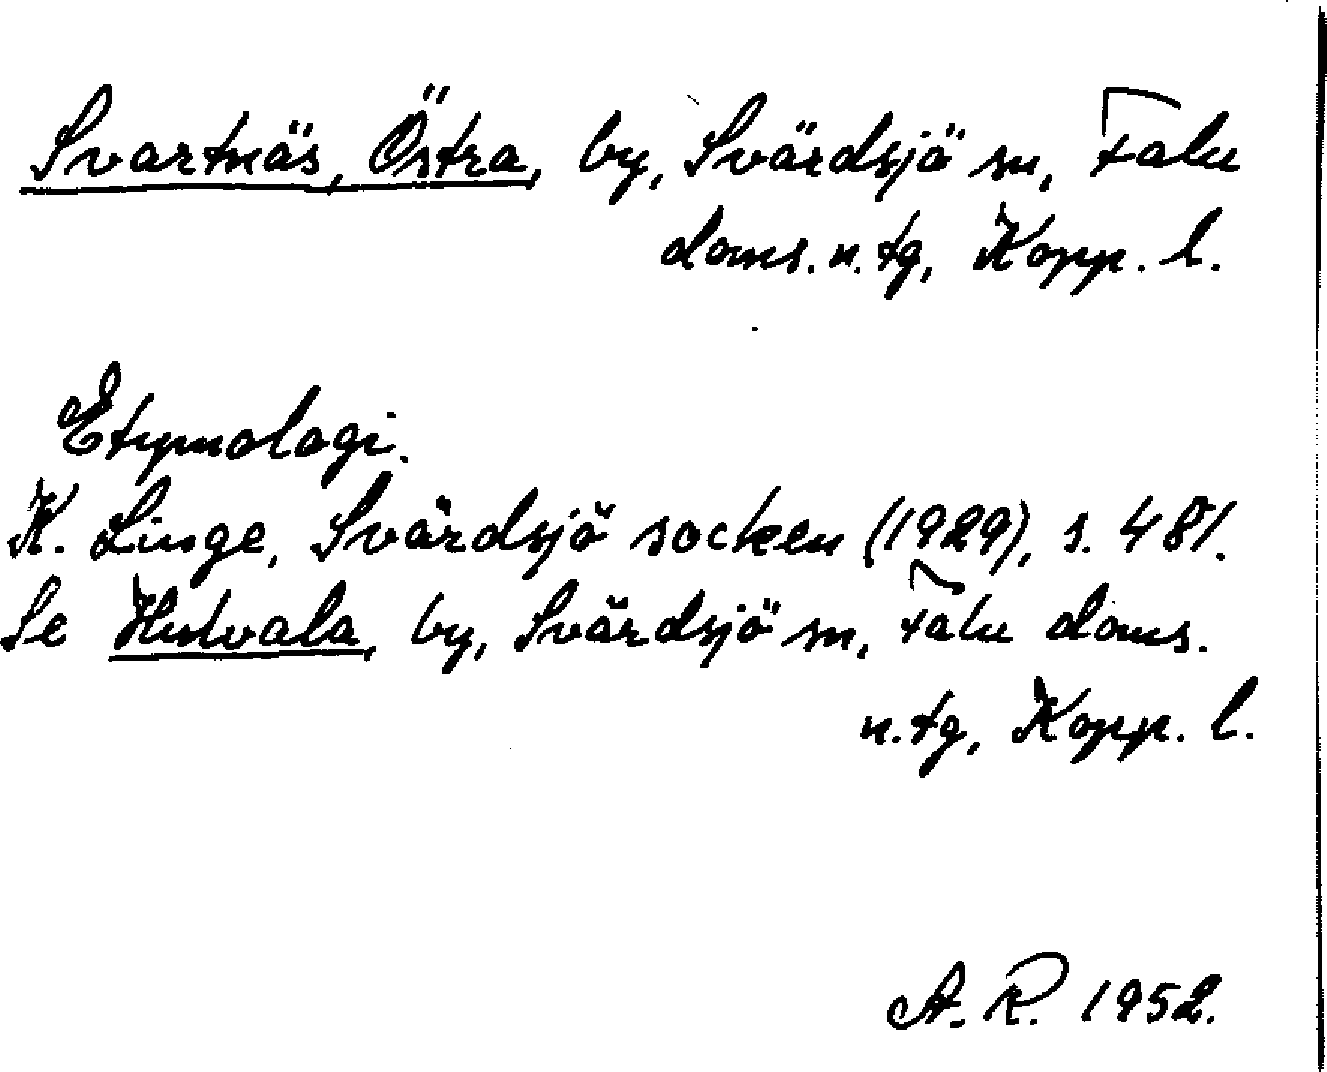 Svartnäs, Östra, by, Svärdsjö sn, Falu
doms. n. tg, Kopp. l.
Etymologi.
K. Linge, Svärdsjö socken (1929), s. 481.
Se Hulvala, by, Svärdsjö sn, Falu doms.
n. tg, Kopp. l.
A. R. 1952.